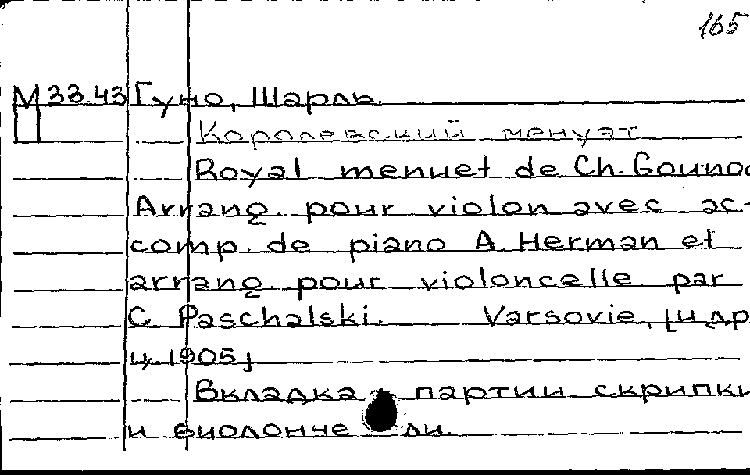 165
М 33.43 Гуно, Шарль.
П
Королевский менуэт
Royal menuet de Ch. Gouno
Arrang. pour violon avec ac-
comp. de piano A. Herman et
arrang pour violoncelle par
C. Paschalski. Varsovie, [и др
ц. 1905]
Вкладка: партии скрипки
и виолончели.